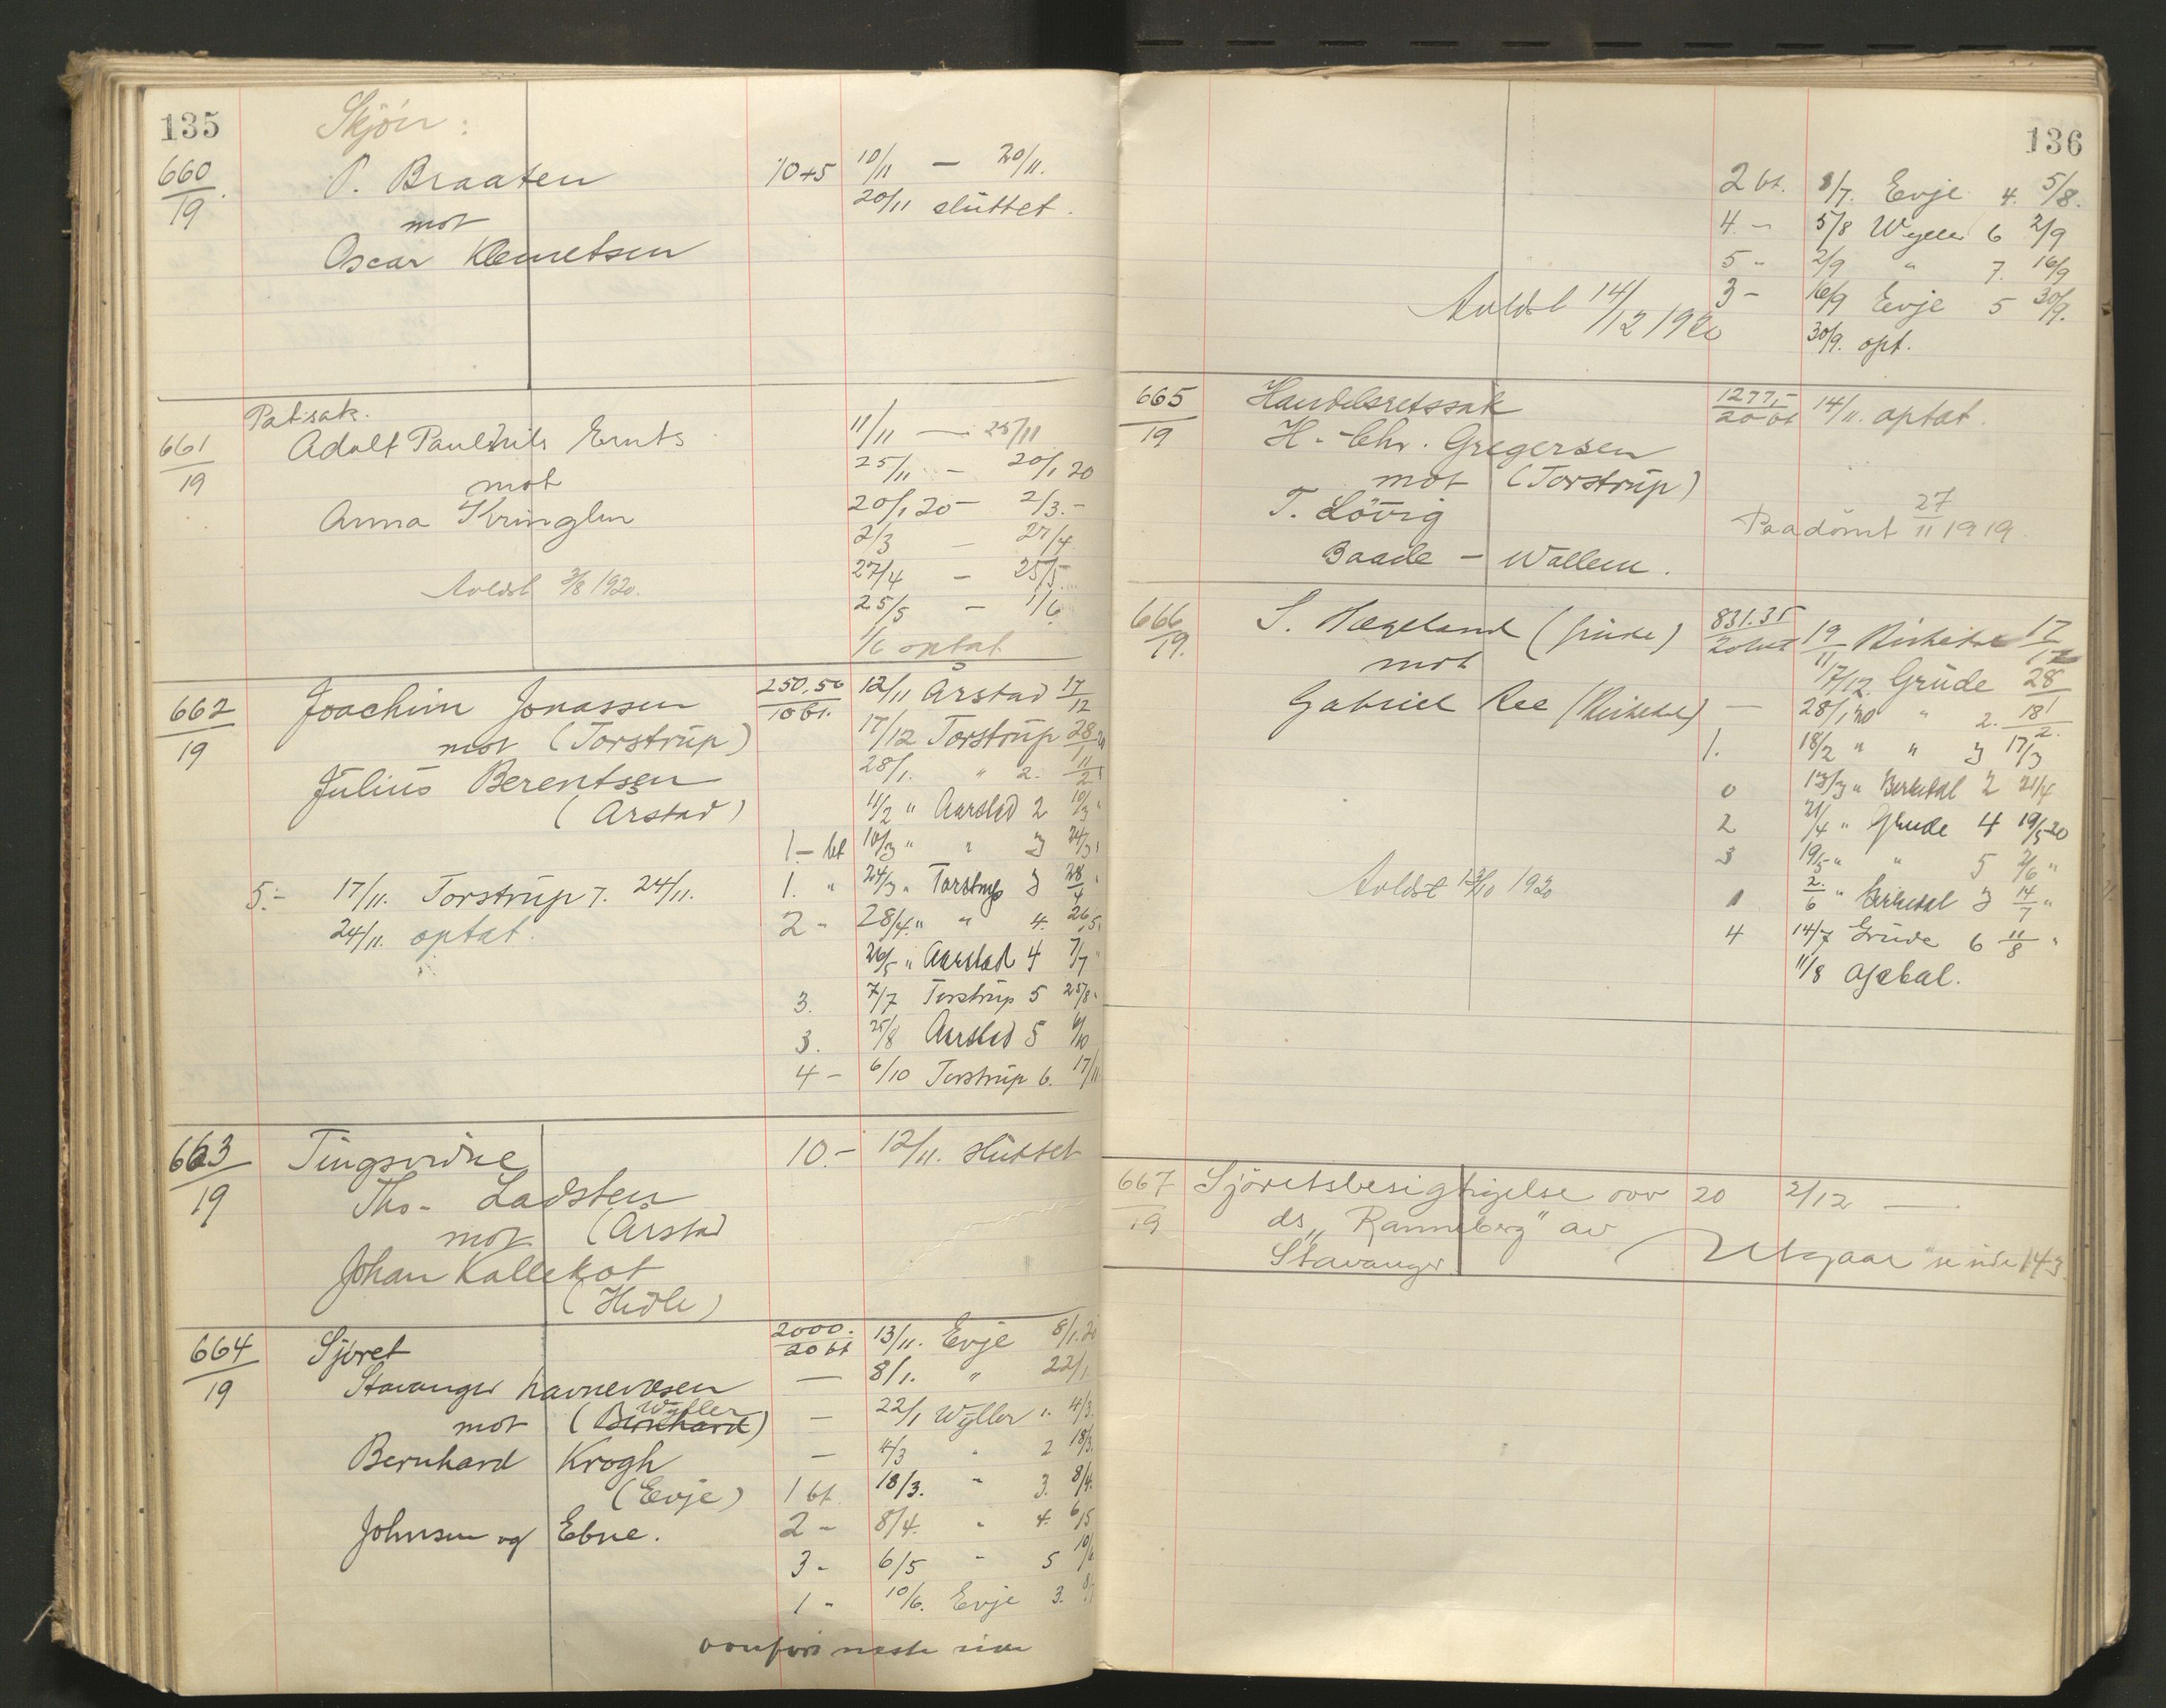 135
Skjön:
660/19
P. Braaten 10+5 10/11 — 20/11.
mot 20/11 sluttet.
Oscar Klemetsen
Pat.sak.
661/19
Adolf Paul Nils Ernts 11/11 — 25/11
mot 25/11 — 20/1 20
Anna Kringlen 20/1 20 — 2/3. -
2/3 — 27/4
Avldst 3/8 1920. 27/4 — 25/5
25/5 — 1/6
1/6 optat
662/19
Joachim Jonassen 250,50 / 10 bt. 12/11 Arstad 17/12
mot (Torstrup) 17/12 Torstrup 28/1 20
Julius Berentsen 28/1. " 2. 11/2
(Arstad) 11/2 " Aarstad 2 10/3 "
1 — bt 10/3 " " 3 24/3
5.- 17/11. Torstrup 7. 24/11. 1. " 24/3 " Torstrup 3 28/4 "
24/11. optat. 2 - 28/4. " " 4. 26/5.
26/5 " Aarstad 4 7/7 "
3. 7/7 Torstrup 5 25/8 "
3. 25/8 Aarstad 5 6/10
4 - 6/10 Torstrup 6. 17/11
663/19
Tingsvidne 10.- 12/11. sluttet
Ths. Ladsten
mot (Arstad
Johan Kallekot
(Hidle)
664/19
Sjøret 2000. / 20 bt 13/11. Evje 8/1. 20
Stavanger havnevæsen — 8/1. " 22/1
Wyller
mot (Bernhard) — 22/1 Wyller 1. 4/3.
Bernhard Krogh — 4/3 " 2 18/3.
(Evje) 1 bt. 18/3. " 3. 8/4.
Johnsen og Ebne. 2 - 8/4. " 4. 6/5
3 - 6/5 " 5 10/6
1 - 10/6. Evje 3. 8/7
ovenført neste side
136
2 bt. 8/7. Evje 4. 5/8.
4. - 5/8 Wyller 6 2/9
5 - 2/9 " 7. 16/9
Avldst 14/12 1920 3 - 16/9 Evje 5 30/9.
30/9. opt.
665/19
Handelsretssak 1277,- / 20 bt 14/11. optat.
H. Chr. Gregersen
mot (Torstrup)
T. Lövig Paadömt 27/11 1919.
Baade — Wallem.
666/19.
S. Hægeland (Grude) 831.35 / 20 bt 19/11 Birkedal 17/12
mot 17/12. Grude 28
Gabriel Ree (Birkedal) — 28/1 20 " 2. 18/2.
1. 18/2 " " 3 17/3
0 13/3 " Birkedal 2 21/4
2 21/4 " Grude 4 19/5 20
3 19/5 " " 5 2/6 "
Avldst 13/10 1920 1 2/6 " Birkedal 3 14/7 "
4 14/7 Grude 6 11/8 "
11/8 optat.
667/19
Sjöretsbesigtigelse over 20 2/12 —
ds „Ranneberg" av
Stavanger Utgaar se side 143